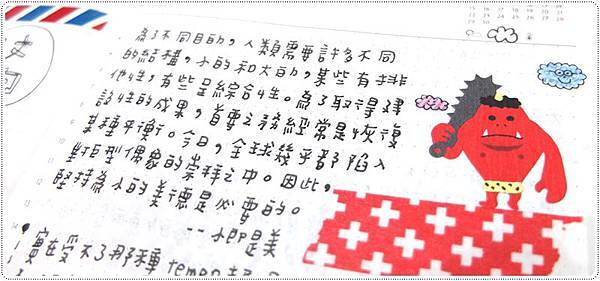 為了不同目的，人類需要許多不同
的結構，小的和大的，某些有排
他性，有些呈綜合性。為了取得建
設性的成果，首要之務經常是恢復
某種平衡。今日，全球幾乎都陷入
對巨型偶象的崇拜之中。因此，
堅持為小的美德是必要的。
——小即是美
實在受不了那種 tempo